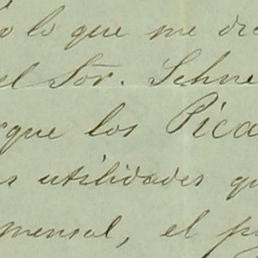 lo que me di
el Sor. Schne
rque los Pica
s utilidades qu
mensal, el p